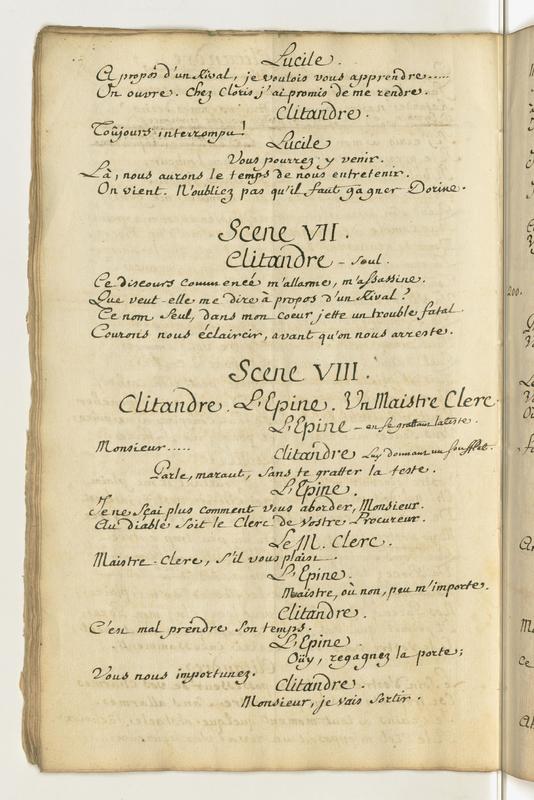 Lucile.
A propos d'un Rival, je voulois vous apprendre.....
On ouvre. Chez Cloris j'ai promis de me rendre.
Clitandre.
Toûjours interrompu!
Lucile
Vous pourrez y venir.
Là, nous aurons le temps de nous entretenir.
On vient. N'oubliez pas qu'il faut gagner Dorine.
Scene VII.
Clitandre - seul.
Ce discours commencé m'allarme, m'assassine.
Que veut-elle me dire à propos d'un Rival?
Ce nom seul, dans mon coeur jette un trouble fatal
Courons nous éclaircir, avant qu'on nous arreste.
Scene VIII.
Clitandre. L'Epine. Un Maistre Clerc
L'Epine - en se grattant la teste.
Monsieur.....
Clitandre luy donnant un soufflet.
Parle, maraut, sans te gratter la teste.
L'Epine.
Je ne sçai plus comment vous aborder, Monsieur.
Au diable soit le Clerc de vostre Procureur.
Le M. Clerc.
Maistre-Clerc, s'il vous plaist.
L'Epine.
Maistre, où non, peu m'importe.
Clitandre.
C'est mal prendre son temps.
L'Epine.
Oüy, regagnez la porte;
Vous nous importunez.
Clitandre.
Monsieur, je vais sortir.
200.